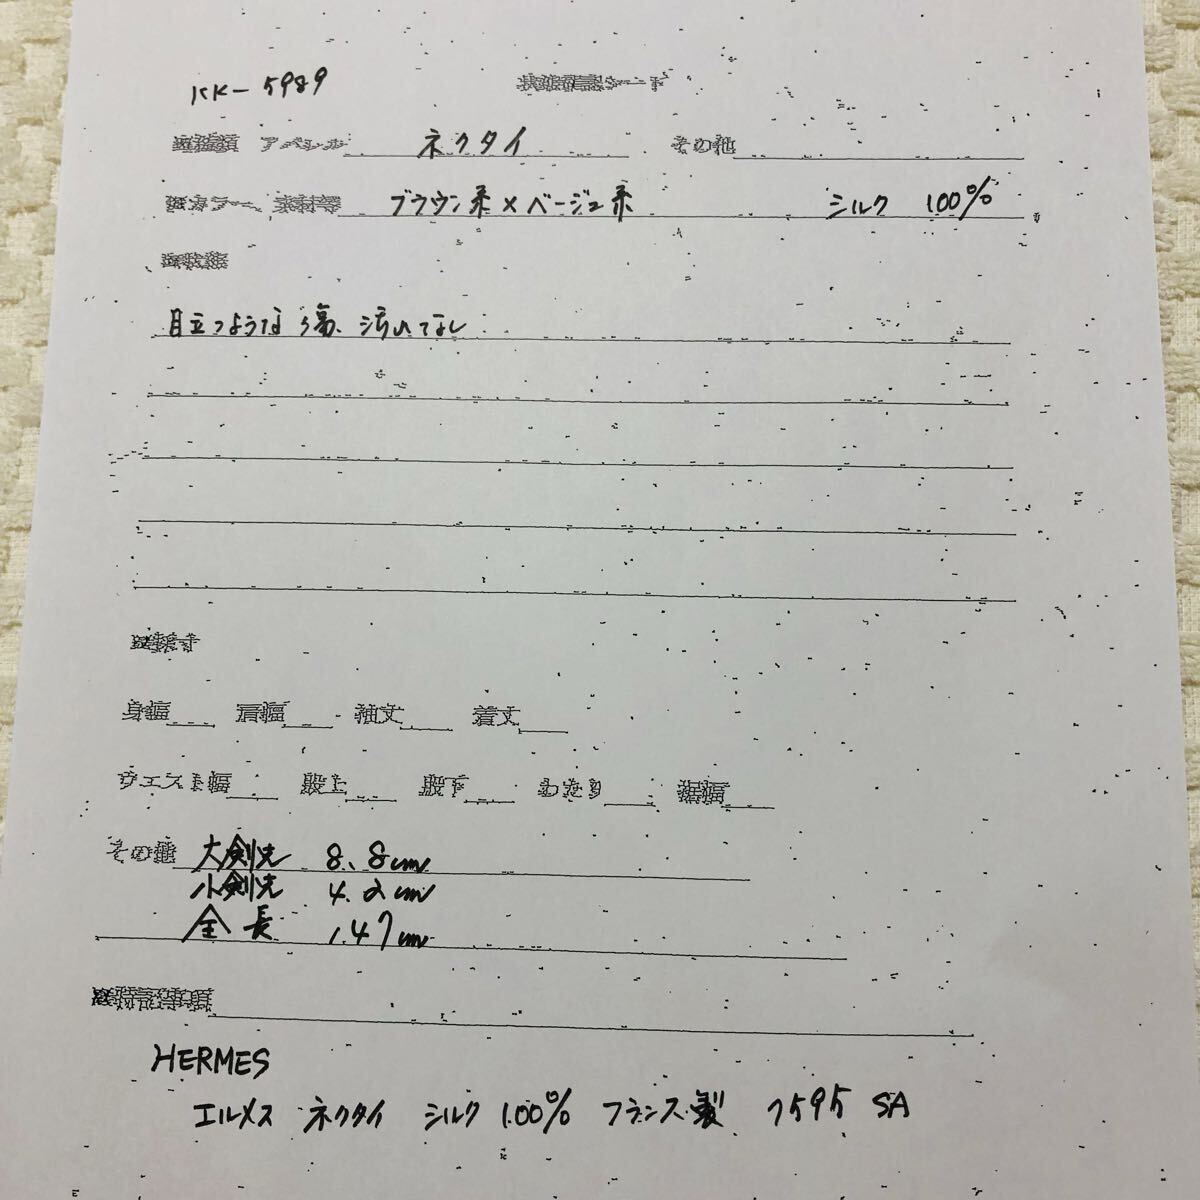 KK-5989 状態確認シート
※種類 アパレル ネクタイ その他
※カラー、素材等 ブラウン系×ベージュ系 シルク 100%
※状態
目立つような傷、汚れてなし
※採寸
身幅 肩幅 袖丈 着丈
ウエスト幅 股上 股下 わたり 裾幅
その他 大剣先 8.8cm
小剣先 4.2cm
全長 147cm
※特記事項
HERMES
エルメス ネクタイ シルク 100% フランス製 7595 SA